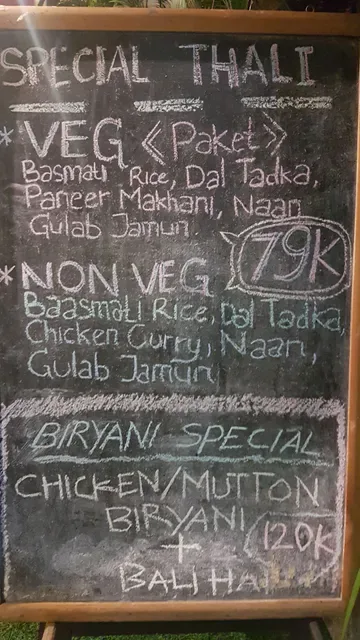 SPECIAL THALI
* VEG 《Paket》
Basmati Rice, Dal Tadka,
Paneer Makhani, Naan
Gulab Jamun.
79K
* NON VEG
Baasmati Rice, Dal Tadka,
Chicken Curry, Naan,
Gulab Jamun
BIRYANI SPECIAL
CHICKEN/MUTTON
BIRYANI (120K
+
BALI